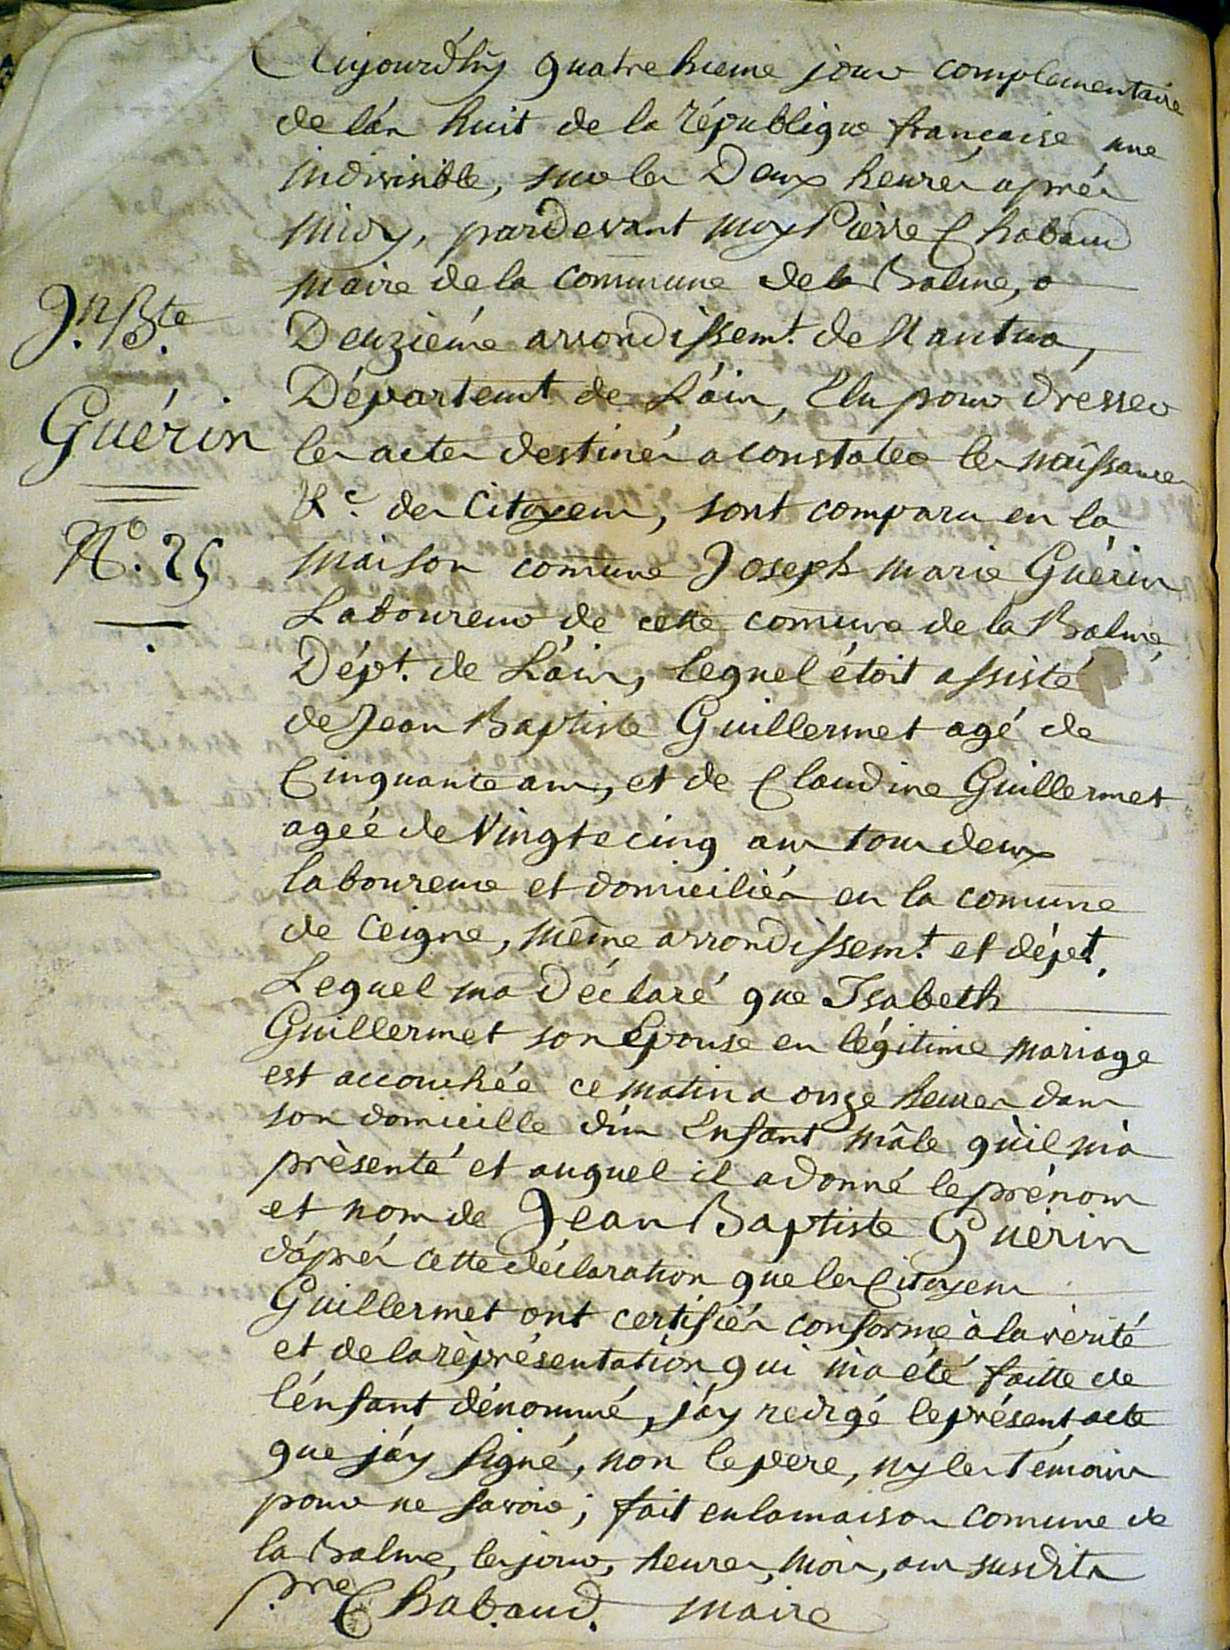 Aujourd'huy quatrehieme jour complementaire
de l'an huit de la république française une
indivisible, sur les Deux heures après
Midy, pardevant moy Pierre Chabaud
Maire de la Commune de la Balme,
Deuzième arrondissemt. de Nantua,
Départemt. de L'ain, Elu pour dresser
les actes destinés a constater les naissances
&c. des Citoyens, sont comparu en la
Maison comune Joseph marie Guérin
Laboureur de cette comune de la Balme,
Dépt. de L'ain, lequel étoit assisté
de Jean Baptiste Guillermet agé de
Cinquante ans, et de Claudine Guillermet
ageé de Vingtecinq ans tous deux
laboureurs et domiciliés en la comune
de Ceigne, même arrondissemt. et dépt.
Lequel m'a Déclaré que Isabeth
Guillermet son Epouse en légitime mariage
est accouchée ce matin a onze heures dans
son domicille d'un Enfant mâle qu'il m'a
présenté et auquel il a donné le prénom
et nom de Jean Baptiste Guérin
d'aprés cette déclaration que les Citoyens
Guillermet ont certifiés conforme à la vérité
et de la réprésentation qui m'a été faitte de
l'énfant dénommé, j'ay redigé le présent acte
que j'ay signé, non le pere, ny les Témoins
pour ne savoir ; fait en la maison comune de
la Balme, les jour, heures, Mois, an susdits
Pre. Chabaud. Maire
Jn. Bte.
Guérin
No. 25